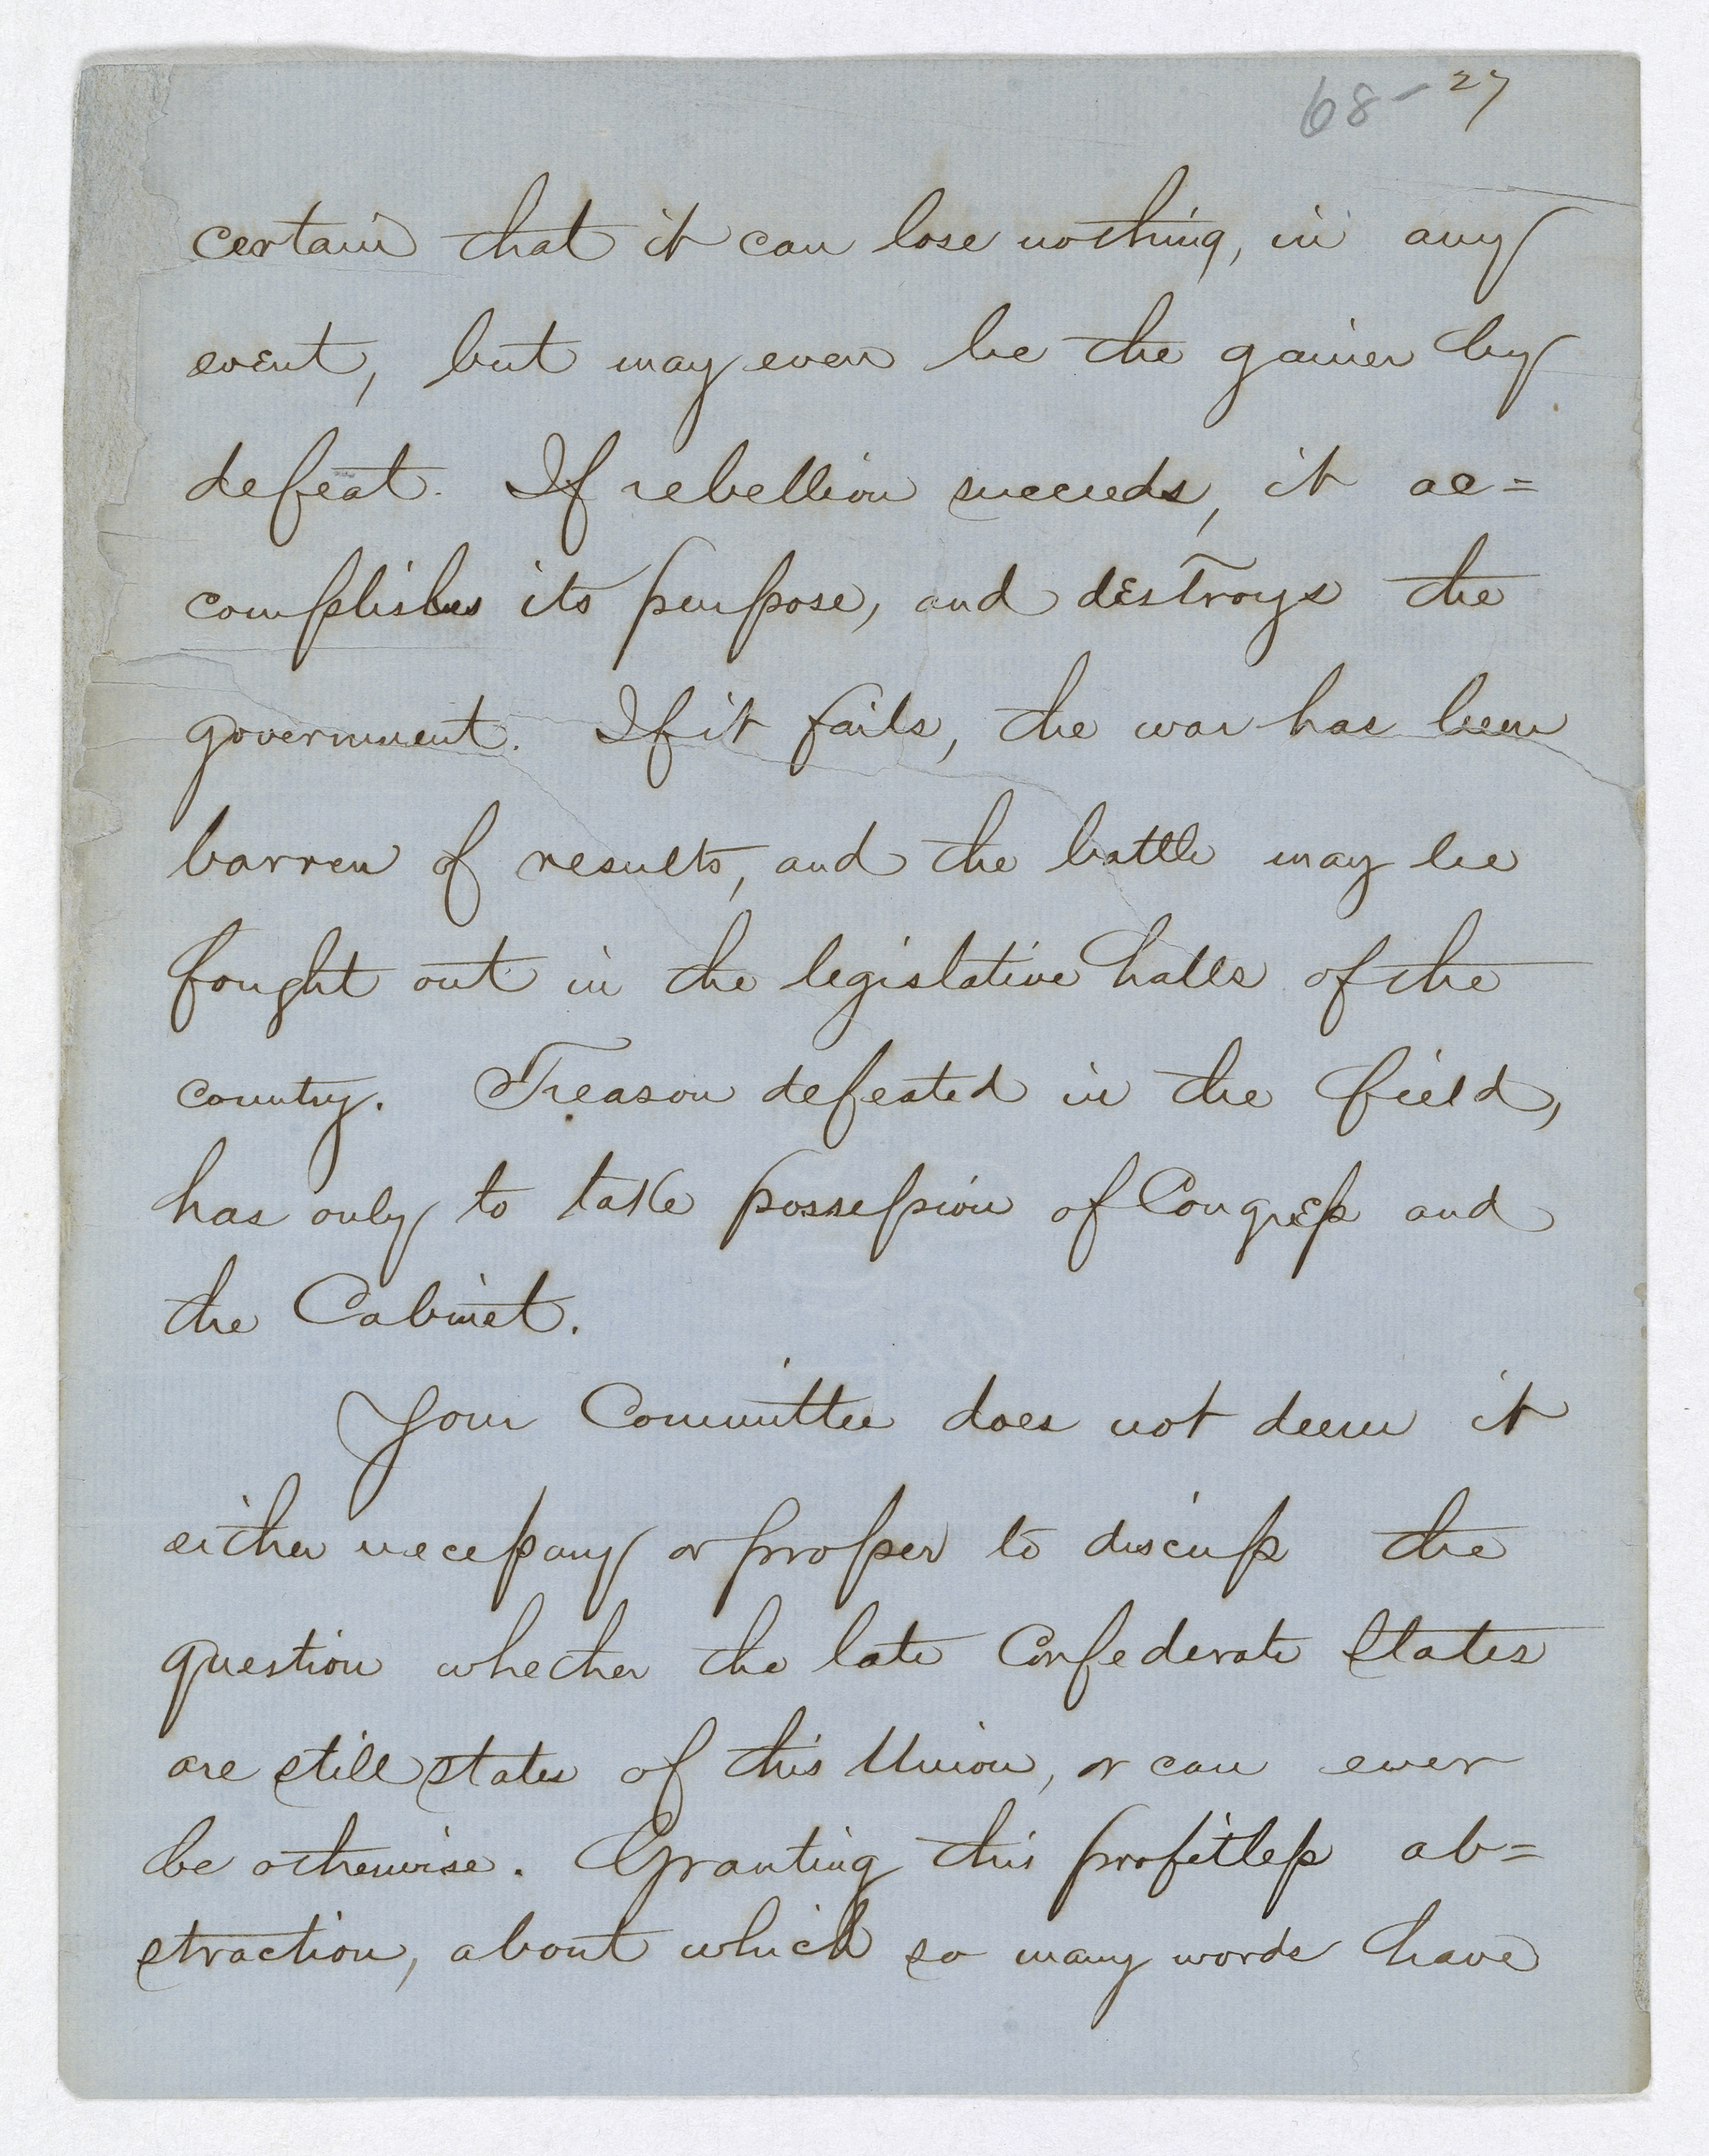 68- 27
certain that it can lose nothing, in any
event, but may even be the gainer by
defeat. If rebellion succeeds, it ac=
complishes its purpose, and destroys the
government. If it fails, the war has been
barren of results, and the battle may be
fought out in the legislative halls of the
country. Treason defeated in the field,
has only to take possession of Congress and
the Cabinet.
Your Committee does not deem it
either necessary or proper to discuss the
question whether the late Confederate States
are still states of this Union, or can ever
be otherwise. Granting this profitless ab=
straction, about which so many words have